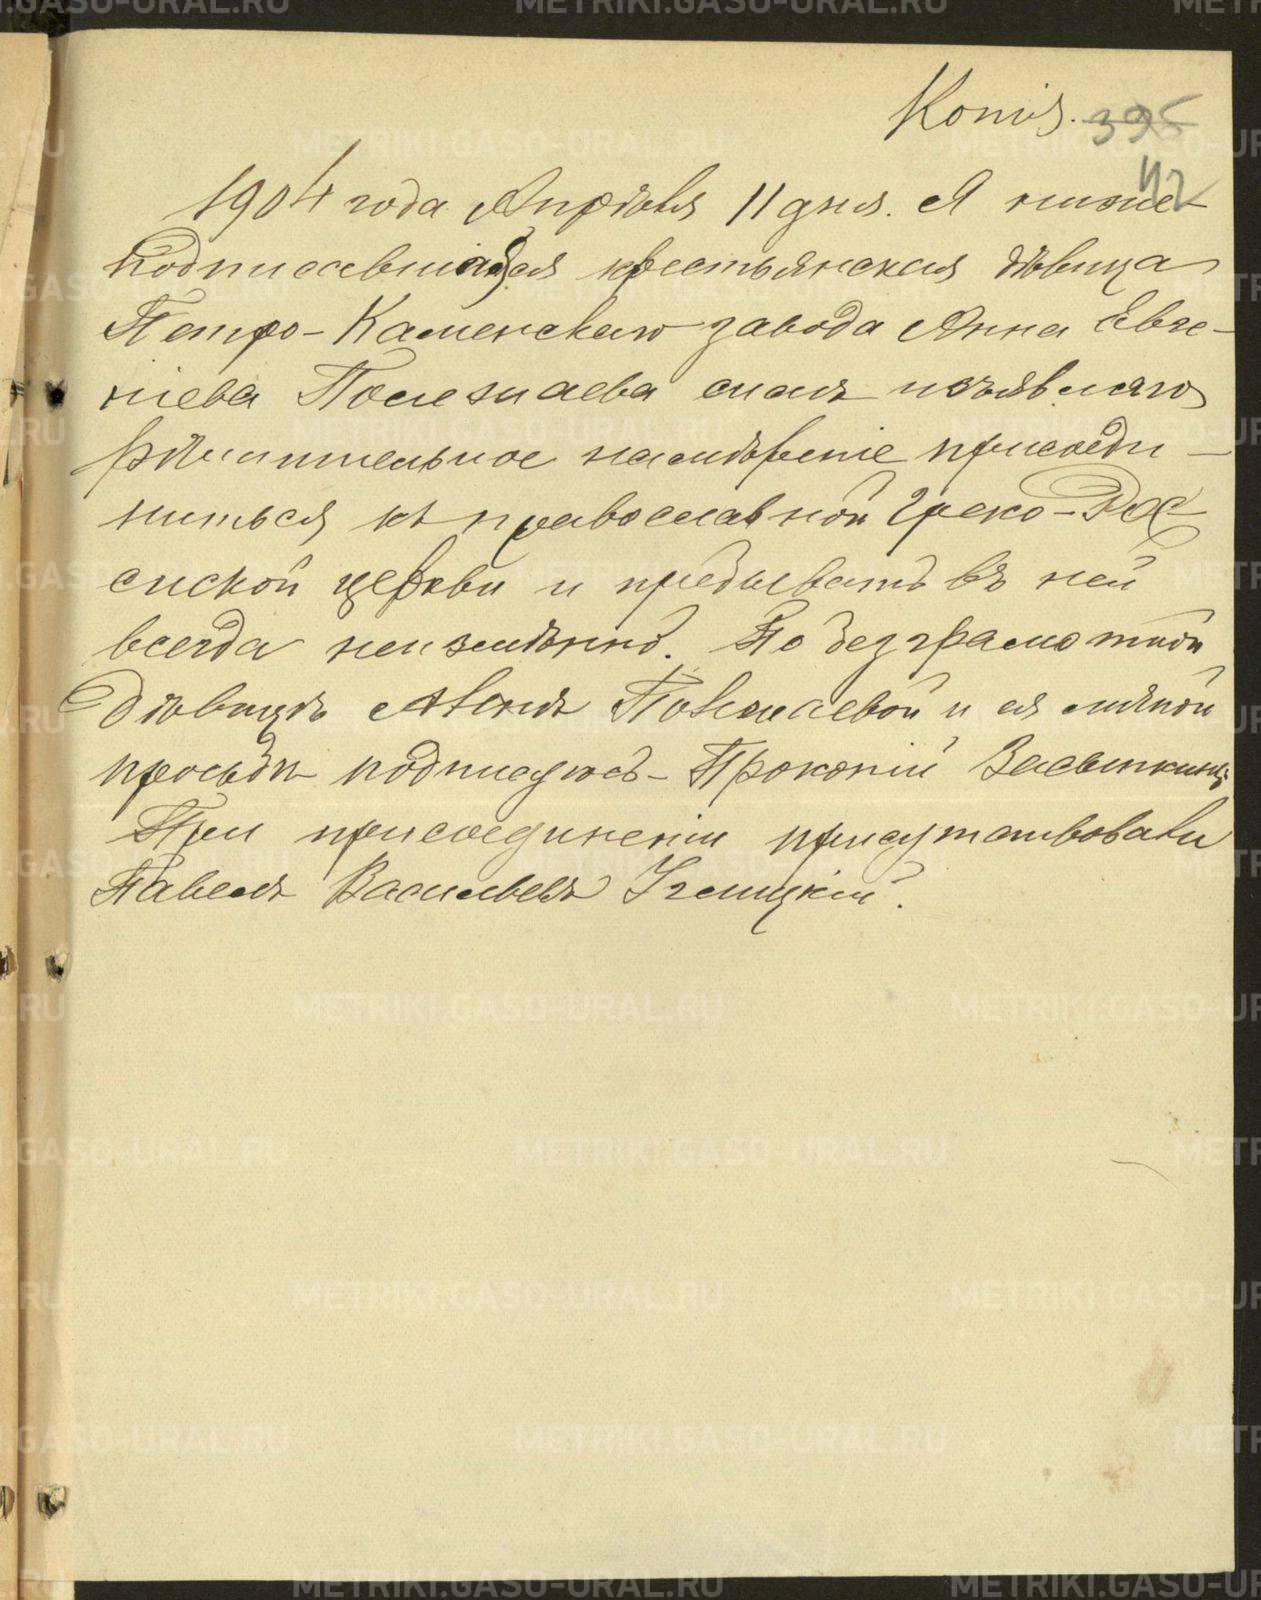 Копія. 395
112
1904 года Апрѣля 11 дня. Я ниже-
подписавшаяся крестьянская дѣвица
Петро-Каменскаго завода Анна Евге-
ніева Полежаева симъ изъявляю
рѣшительное намѣреніе присоеди-
ниться къ православной Греко-Рос
сиской церкви и пребывать въ ней
всегда неизмѣнно. По безграмотной
дѣвицѣ Аннѣ Полежаевой и ея личной
просьбѣ подписуюсь - Прокопій
При присоединеніи присутствовали
Павелъ Васильевъ Углицкій.
METRIKI.GASO-URAL.RU